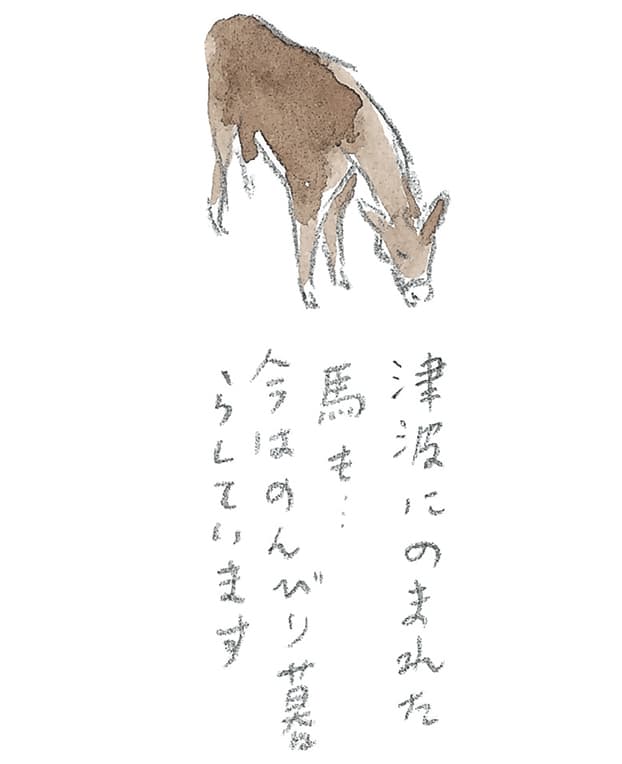 津波にのまれた
馬も…
今はのんびり暮
らしています